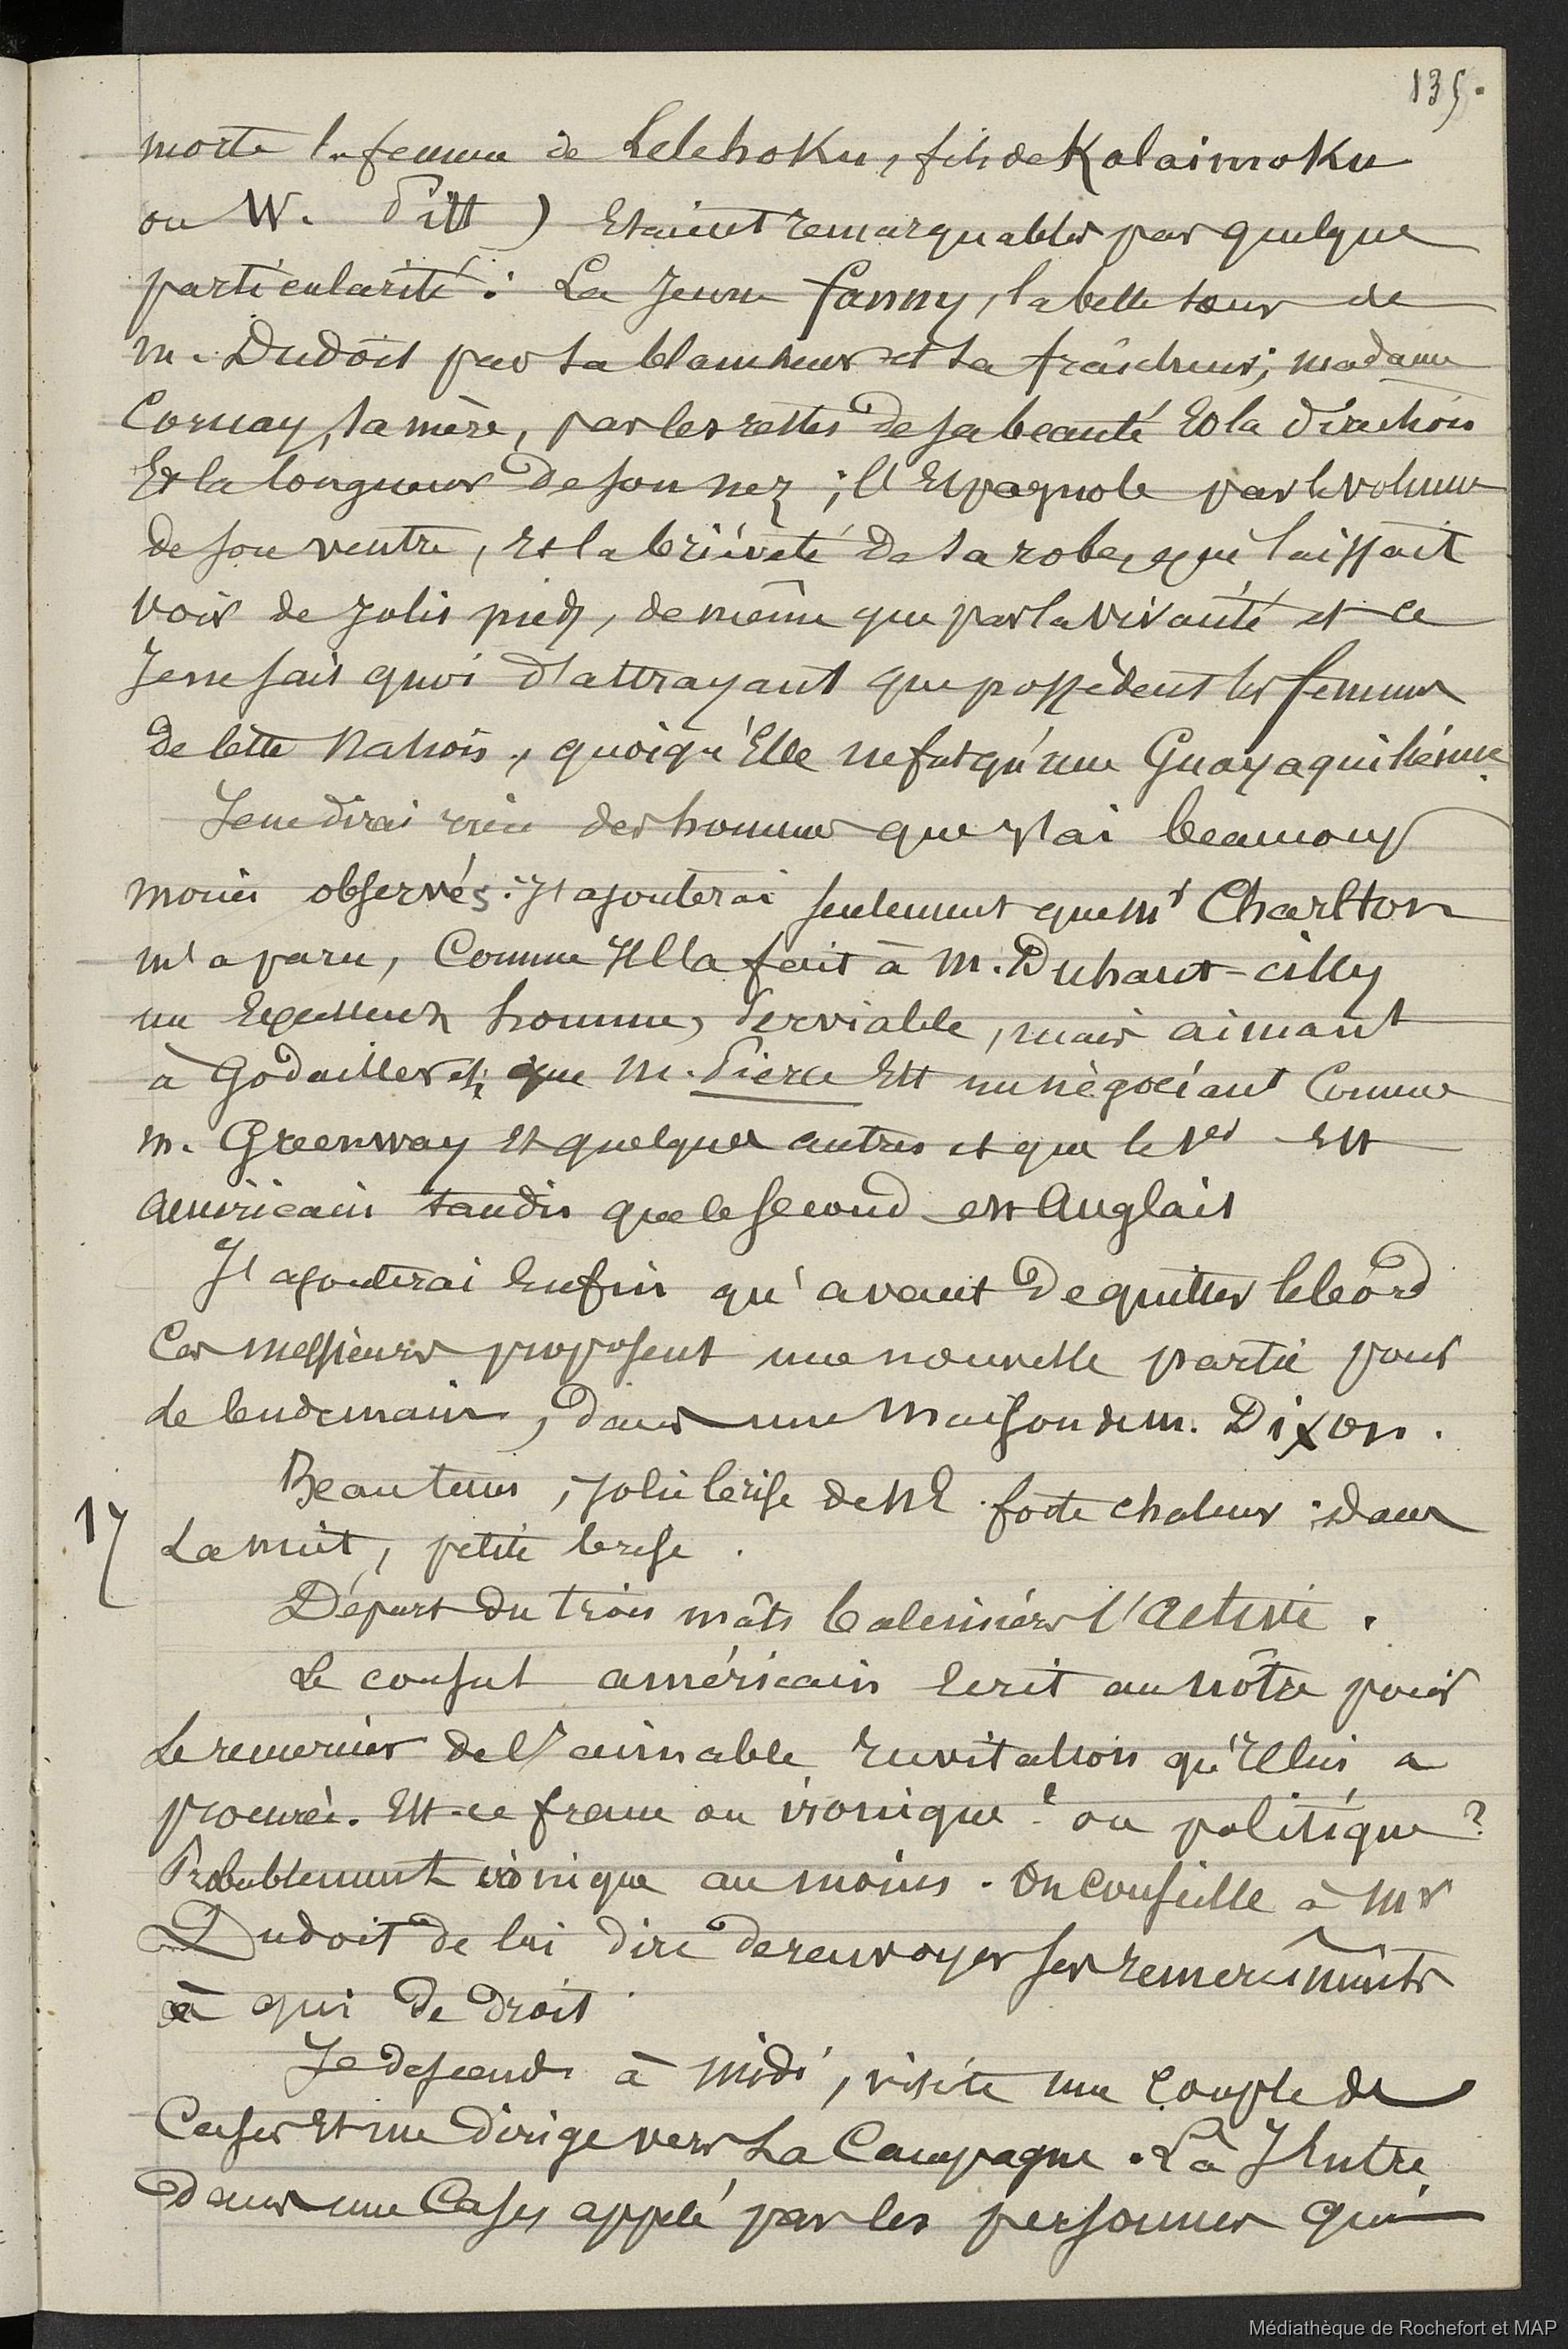 135.
morte la femme de Lelehoku, fils de Kalaimoku
ou W. Pitt ) Etaient remarquables par quelque
particularité : La jeune fanny, la belle sœur de
m. Dudoit par sa blancheur et sa fraîcheur; madame
Cornay, sa mère, par les restes de sa beauté Et la direction
Et la longueur de son nez ; l'Espagnole par le volume
de son ventre, et la brièveté de sa robe, qui laissait
voir de jolis pieds, de même que par la vivacité et ce
Je ne sais quoi d'attrayant que possèdent les femmes
de cette Nation, quoiqu'Elle ne fut qu'une Guayaquilienne.
Je ne dirai rien des hommes que j'ai beaucoup
moins observés. J'ajouterai seulement que Mr Charlton
m'a paru, Comme Il l'a fait à M. Duhaut-cilly
un Excellent homme, Serviable, mais aimant
à Godailler et; que M. Pierce Est un négociant Comme
m. Greenway Et quelques autres et que le 1er Est
américain tandis que le second est Anglais
J'ajouterai Enfin qu'avant de quitter le bord
Ces messieurs proposent une nouvelle partie pour
le lendemain, dans une maison de m. Dixon.
Beau tems, jolie brise de NE. forte chaleur; dans
17
La nuit, petite brise.
Départ du trois mâts baleinier l'activité.
Le consul américain Ecrit au nôtre pour
Le remercier de l'aimable Invitation qu'Il lui a
procuré. Est-ce franc ou ironique? ou politique?
Probablement ironique au moins. On conseille à Mr
Dudoit de lui dire de renvoyer ses remercîments
à qui de droit.
Je descends à midi, visite une couple de
Cases Et me dirige vers La Campagne. Là J'Entre
dans une Case, appelé par les personnes qui
Médiathèque de Rochefort et MAP